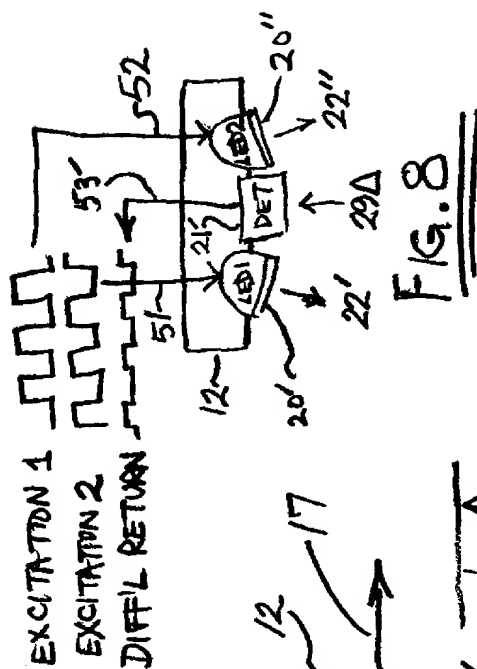 EXCITATION 1
EXCITATION 2
DIFF'L RETURN
52
53'
51
12
21'
LED1
DET
LED2
20'
20"
22'
29Δ
22"
FIG. 8
12
17